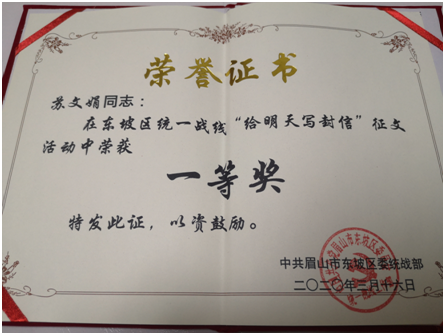 荣誉证书
苏文娟同志：
在东坡区统一战线“给明天写封信”征文
活动中荣获
一等奖
特发此证，以资鼓励。
中共眉山市东坡区委统战部
二〇二〇年三月十六日